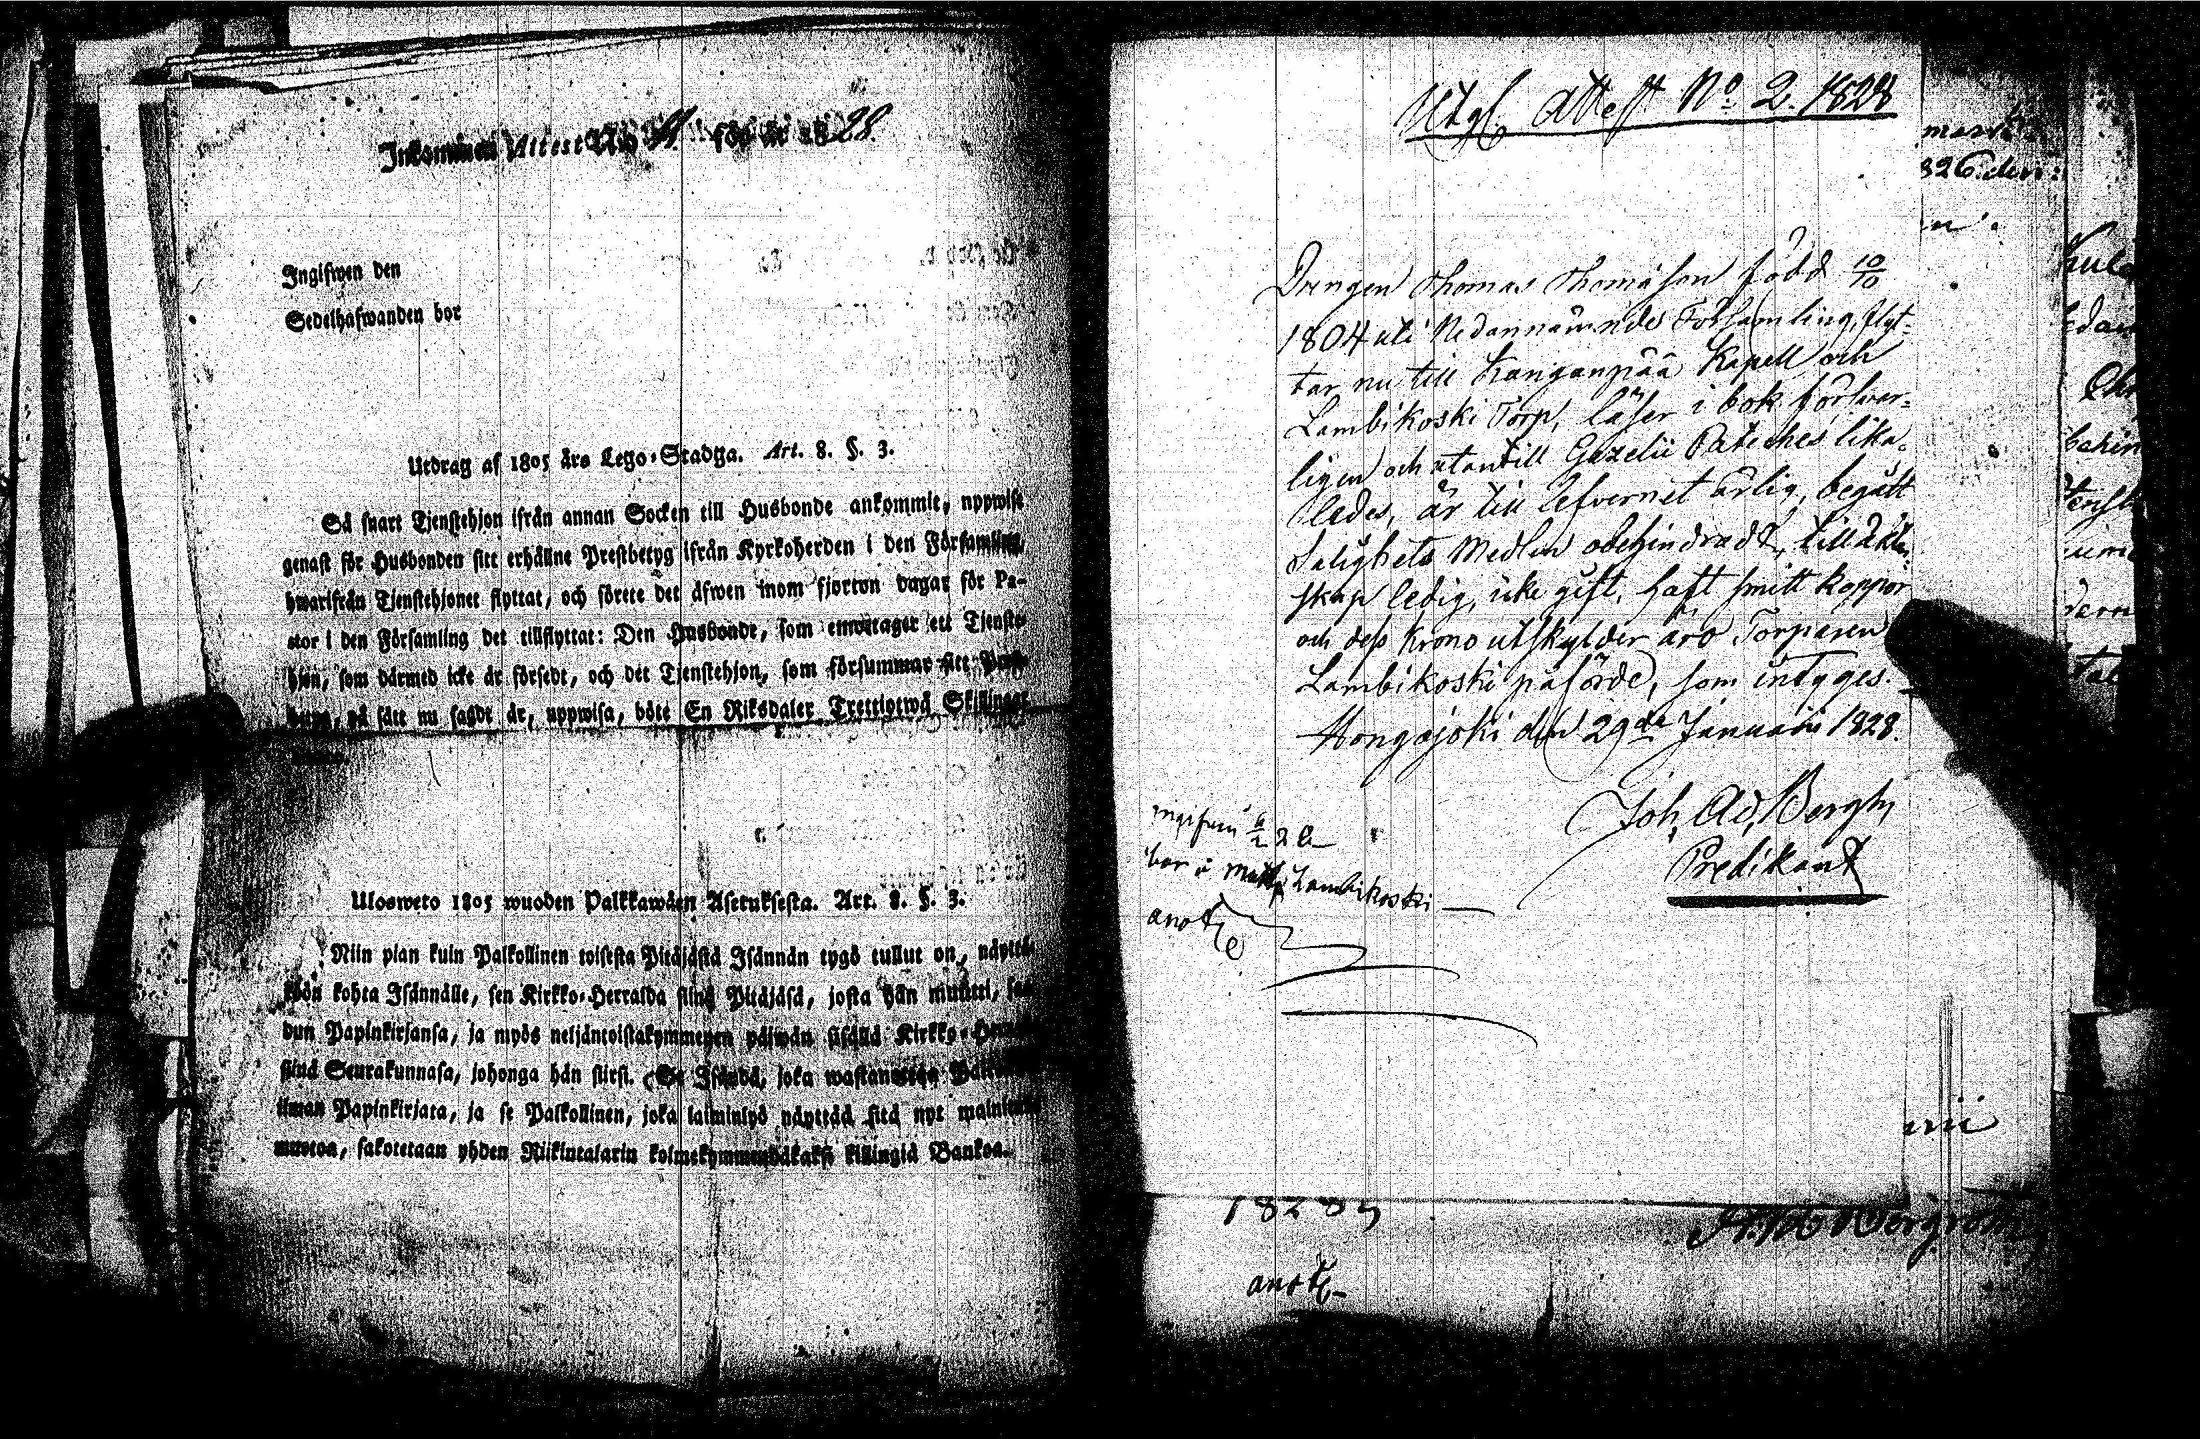 Inkommen Attest No 11. för år 1828.
Ingifwen den
Sedelhafwanden bor
Utdrag af 1805 års Lego-Stadga. Art. 8. §. 3.
Så snart Tjenstehjon ifrån annan Socken till Husbonde ankommit, uppwise
genast för Husbonden sitt erhållne Prestbetyg ifrån Kyrkoherden i den Församling,
hwarifrån Tjenstehjonet flyttat, och förete det äfwen inom fjorton dagar för Pa-
stor i den Församling det tillflyttat: Den Husbonde, som emottager ett Tjenste-
hjon, som därmed icke är försedt, och det Tjenstehjon, som försummar sitt
på sätt nu sagdt är, uppwisa, böte En Riksdaler Trettiotwå Skillingar
Ulosweto 1805 wuoden Palkkawäen Asetuksesta. Art. 8. §. 3.
Niin pian kuin Palkollinen toisesta Pitäjästä Isännän tygö tullut on, näyttä-
köön kohta Isännälle, sen Kirkko-Herralda siinä Pitäjäsä, josta hän muutti, saa-
dun Papinkirjansa, ja myös neljäntoistakymmenen päiwän sisällä Kirkko-
siinä Seurakunnasa, johonga hän siirsi. Se Isändä, joka wastanottaa
ilman Papinkirjata, ja se Palkollinen, joka laiminlyö näyttää sitä nyt
muotoa, sakotetaan yhden Riikintalarin kolmekymmendäkaksi killingiä Bankoa.
Utgf. Attest No 2. 1828
Drengen Thomas Thomasson född 10/10
1804 uti Nedannämnde Församling, flyt-
tar nu till Kanganpää Kapell och
Lambikoski Torp, läser i bok försvar-
ligen och utantill Gezelii Pateches lika-
ledes, är till lefvernet ärlig, begått
Salighets Medlen obehindradt, till äkten-
skap ledig, icke gift, haft smitt koppor
och dess Krono utskylder äro Torparen
Lambikoski påförde, som intygas.
Hongojoki den 29de Januarii 1828.
Joh. Ad. Bergh,
Predikant
bor i Lambikoski
anot
anot